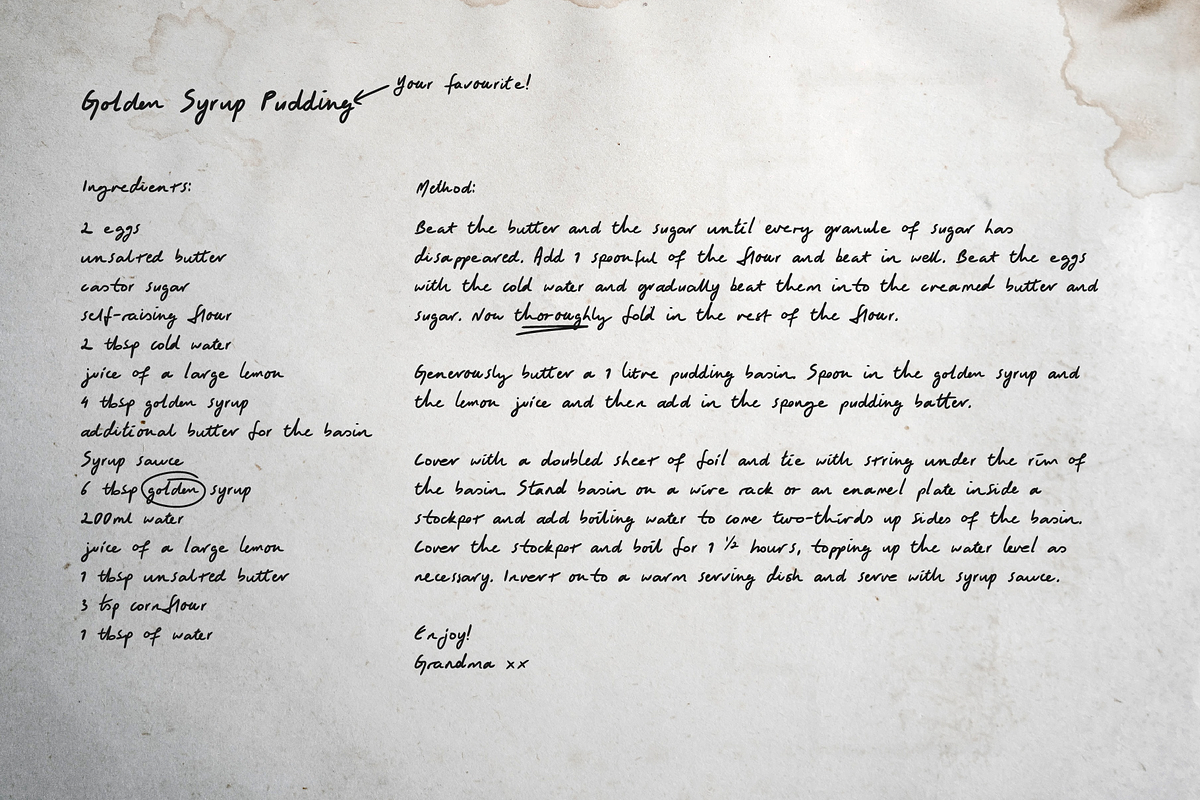 Golden Syrup Pudding
Your favourite!
Ingredients:
2 eggs
unsalted butter
castor sugar
self-raising flour
2 tbsp cold water
juice of a large lemon
4 tbsp golden syrup
additional butter for the basin
Syrup sauce
6 tbsp golden syrup
200ml water
juice of a large lemon
1 tbsp unsalted butter
3 tsp cornflour
1 tbsp of water
Method:
Beat the butter and the sugar until every granule of sugar has
disappeared. Add 1 spoonful of the flour and beat in well. Beat the eggs
with the cold water and gradually beat them into the creamed butter and
sugar. Now thoroughly fold in the rest of the flour.
Generously butter a 1 litre pudding basin. Spoon in the golden syrup and
the lemon juice and then add in the sponge pudding batter.
Cover with a doubled sheet of foil and tie with string under the rim of
the basin. Stand basin on a wire rack or an enamel plate inside a
stockpot and add boiling water to come two-thirds up sides of the basin.
Cover the stockpot and boil for 1 ½ hours, topping up the water level as
necessary. Invert onto a warm serving dish and serve with syrup sauce.
Enjoy!
Grandma xx